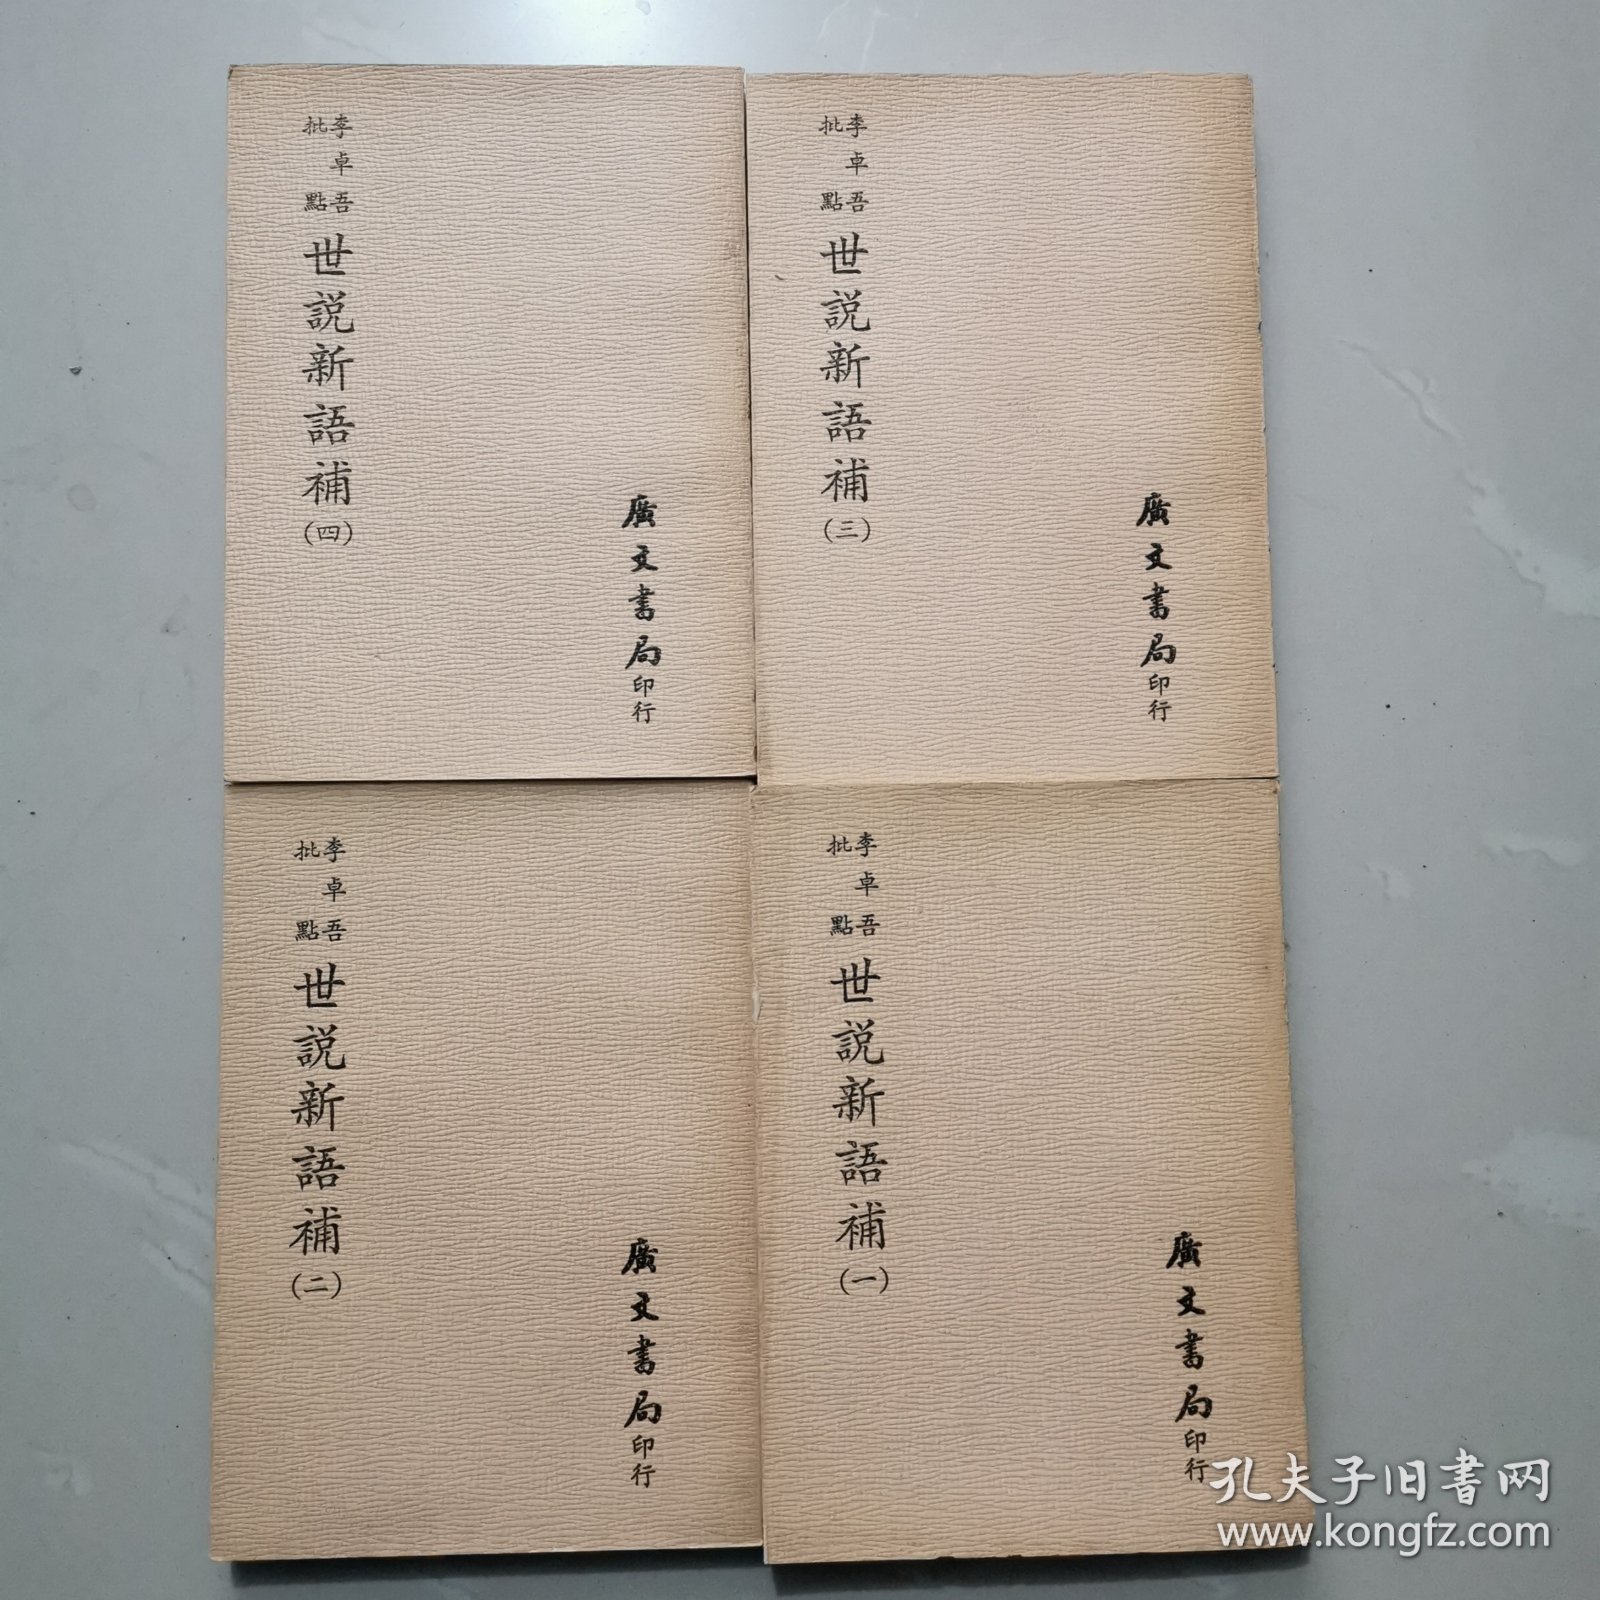 李卓吾
批點
世説新語補
(四)
廣文書局印行
李卓吾
批點
世説新語補
(三)
廣文書局印行
李卓吾
批點
世説新語補
(二)
廣文書局印行
李卓吾
批點
世説新語補
(一)
廣文書局印行
孔夫子旧書网
www.kongfz.com